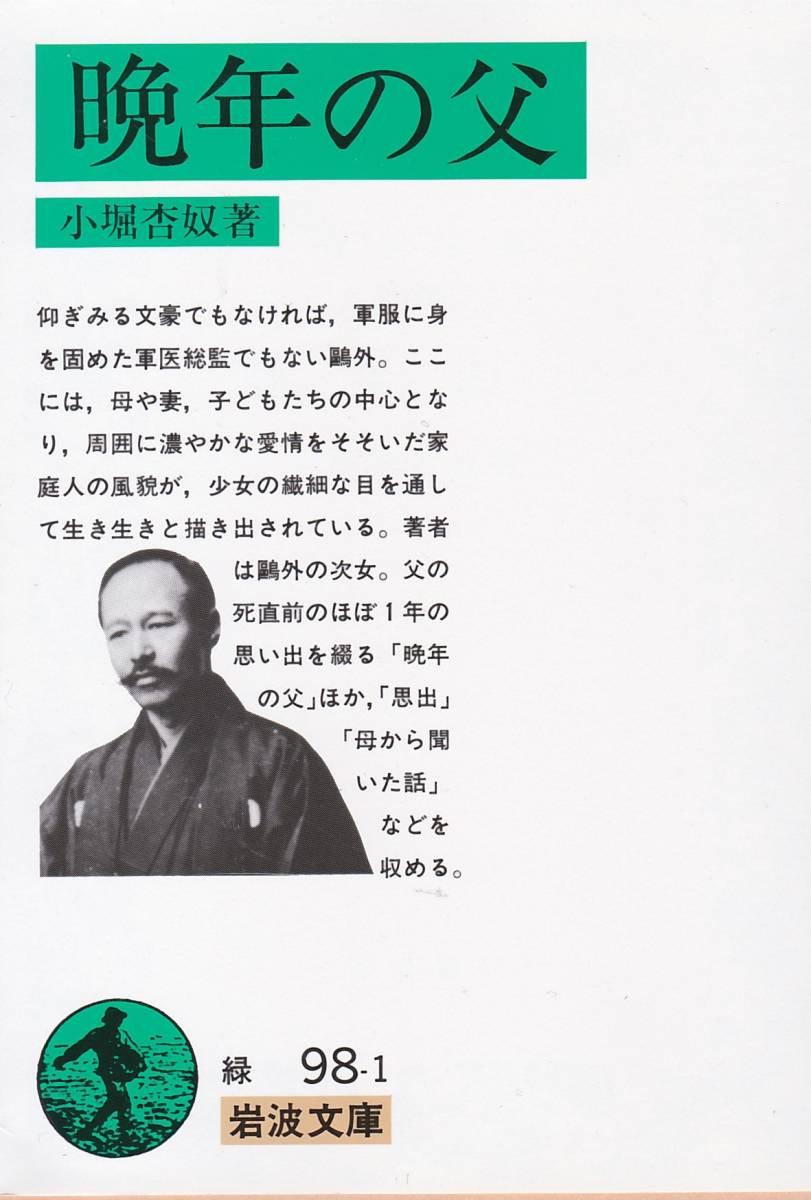 晩年の父
小堀杏奴著
仰ぎみる文豪でもなければ，軍服に身
を固めた軍医総監でもない鷗外。ここ
には，母や妻，子どもたちの中心とな
り，周囲に濃やかな愛情をそそいだ家
庭人の風貌が，少女の繊細な目を通し
て生き生きと描き出されている。著者
は鷗外の次女。父の
死直前のほぼ1年の
思い出を綴る「晩年
の父」ほか，「思出」
「母から聞
いた話」
などを
収める。
緑 98-1
岩波文庫